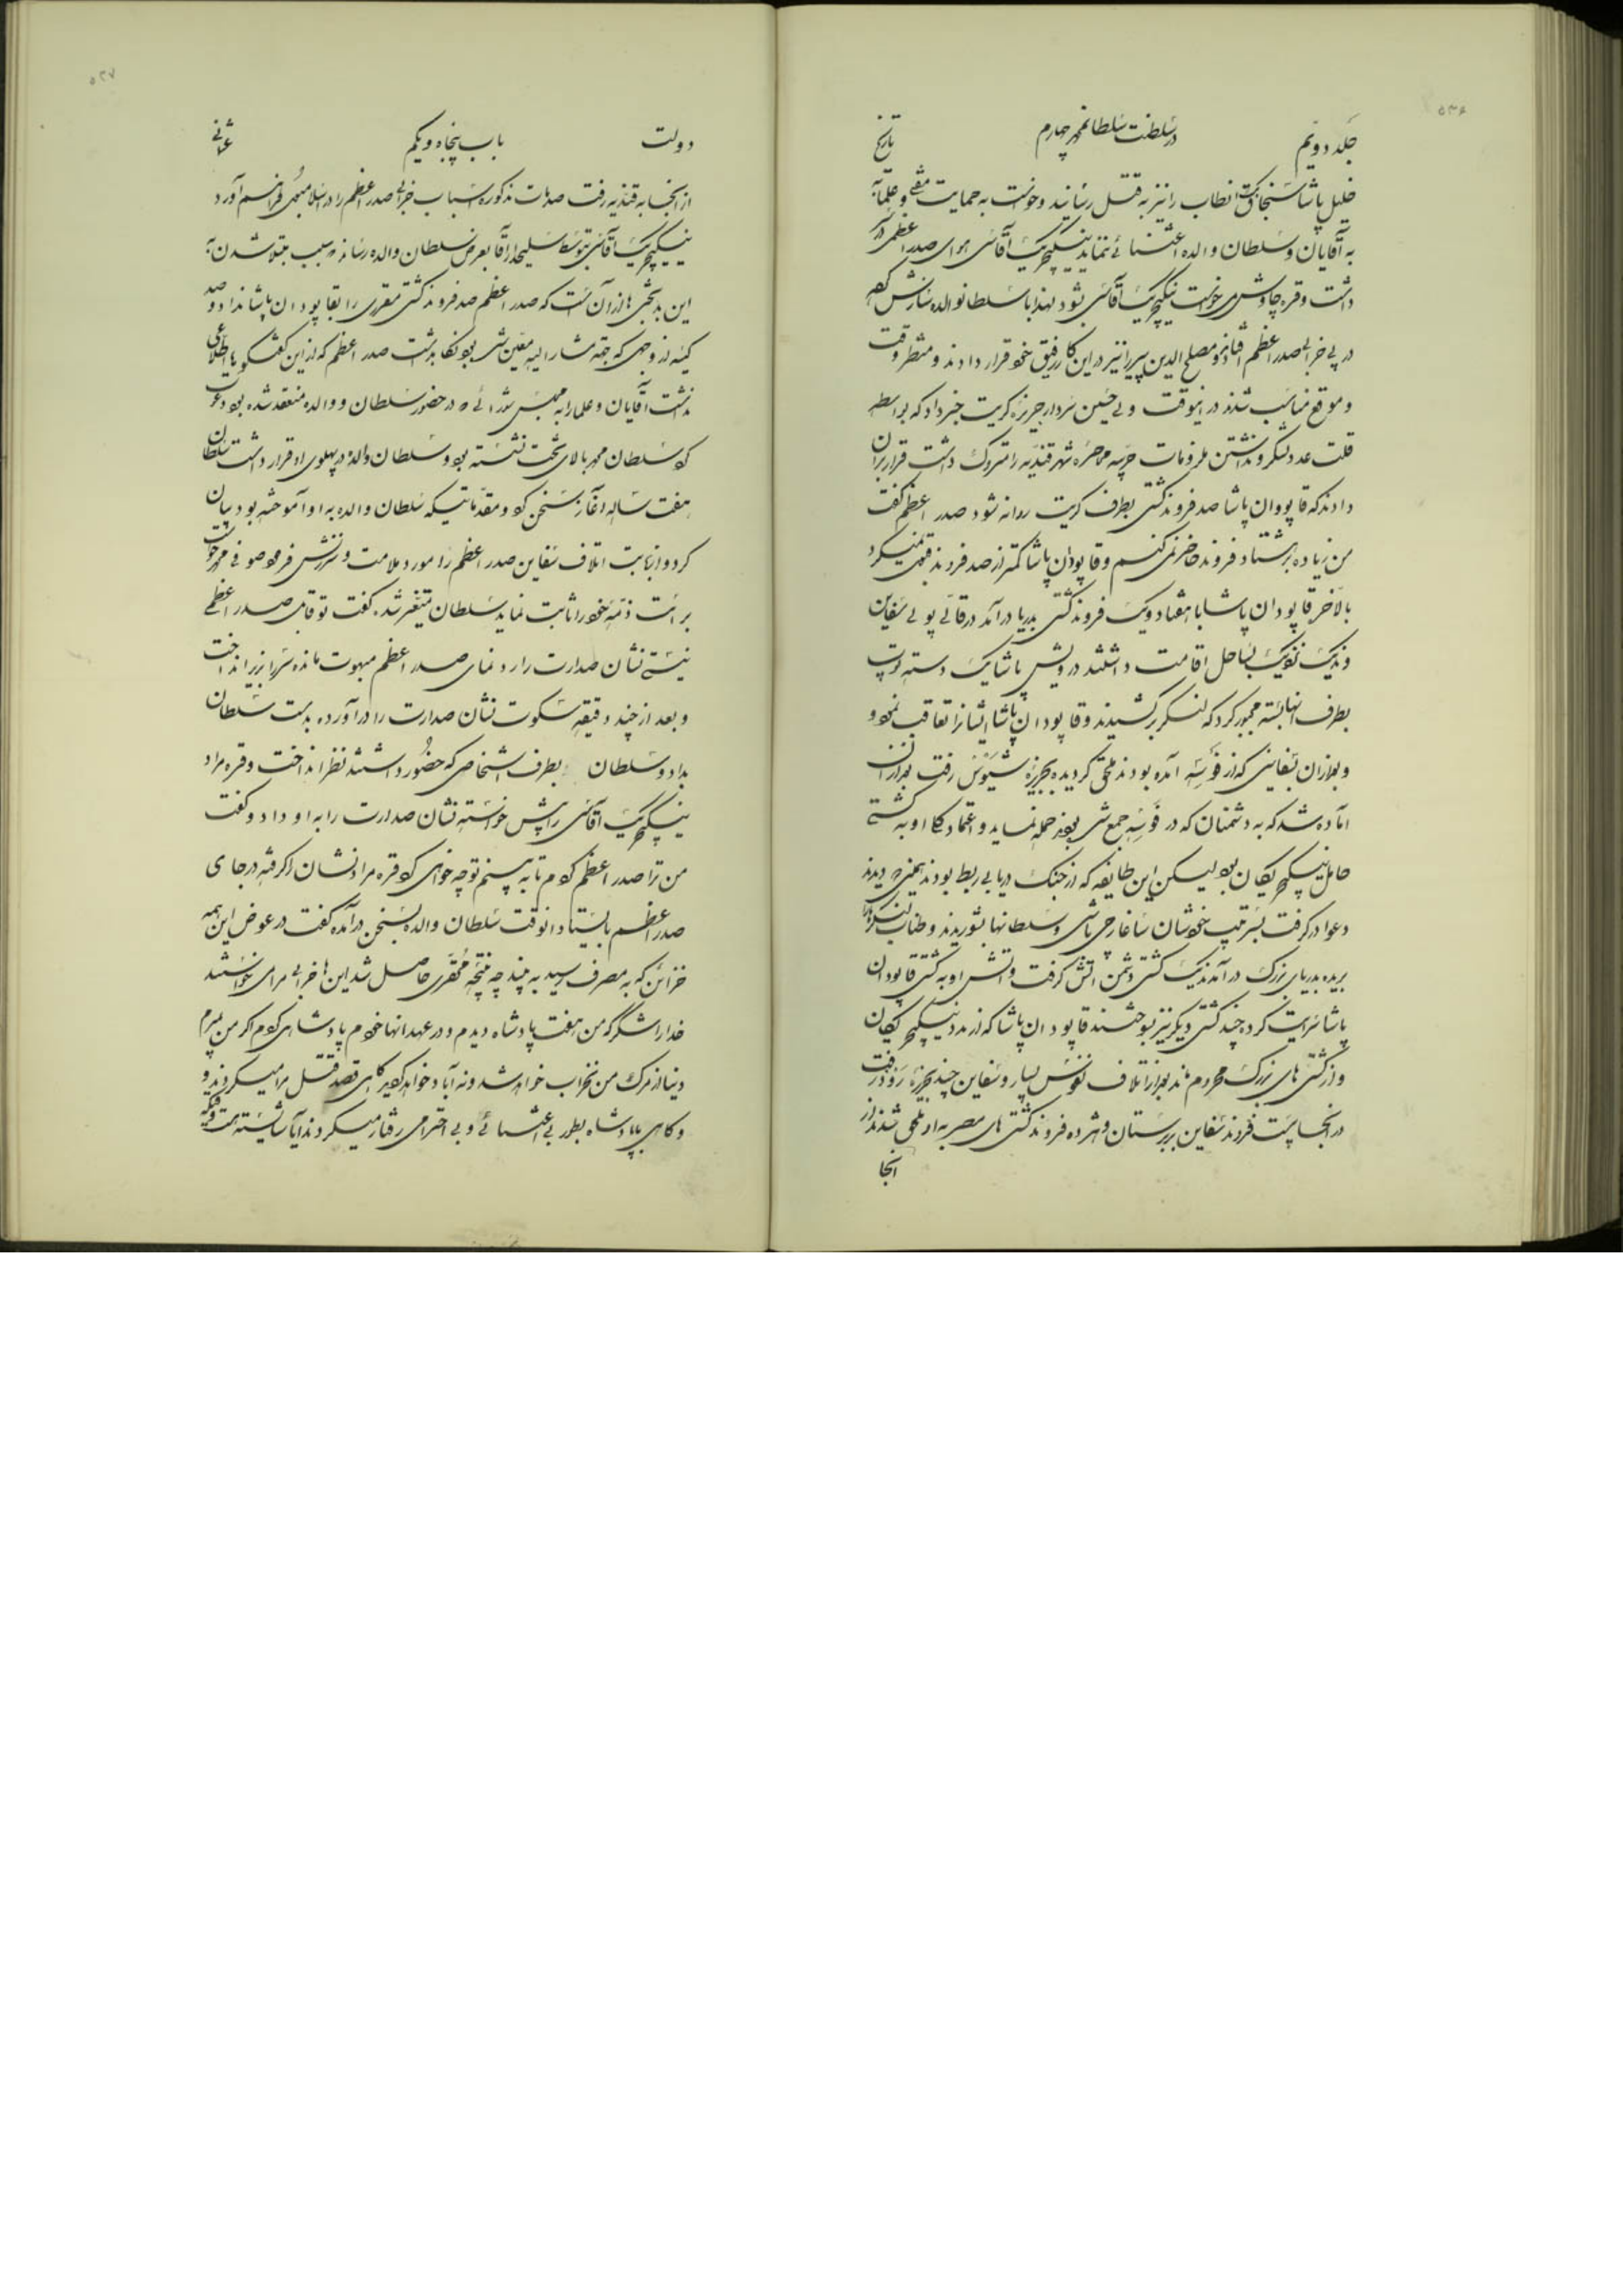 ۵۳۶
جلد دوّم در سلطنت سلطان محمد چهارم تاریخ
خلیل پاشا سنجاق بک انطاب را نیز به قتل رسانید و خواست به حمایت مفتی و علما به
به آقایان و سلطان والده اعتنائی ننماید ینیکچریک آقاسی هوای صدر اعظمی در
داشت و قره چاوش می خواست ینیکچریک آقاسی بشود لهذا با سلطان والده سازش کرده
در پی خرابی صدر اعظم افتادند و مصلح الدین را نیز در این کار رفیق خود قرار دادند و منتظر وقت
و موقع مناسب شدند در انوقت ولی حسین سردار جزیره کریت خبر داد که بواسطه
قلت عدد لشکر و نداشتن ملزومات حربیه محاصره شهر قندیه را متروک داشت قرار بران
دادند که قاپودان پاشا صد فروند کشتی بطرف کریت روانه شود صدر اعظم گفت
من زیاده بر هشتاد فروند حاضر نمی کنم و قاپودان پاشا کمتر از صد فروند قبول نمیکرد
بالاخره قاپودان پاشا با هفتاد و یک فروند کشتی بدریا در آمد در قالی پولی سفاین
ونیک نزدیک بساحل اقامت داشتند درویش پاشا یک دسته توپ
بطرف انها بسته مجبور کرد که لنگر برکشیدند و قاپودان پاشا ایشانرا تعاقب نمود و
و بعد ازان بسفاینی که از فوسه آمده بودند ملحق گردیده بجزیره شیوس رفت بعد ازان
اماده شد که به دشمنان که در فوسه جمع شده بودند حمله نماید و اعتماد کلی او به کشتی
حامل ینیکچریکان بود لیکن این طایفه که از جنگ دریا بی ربط بودند همینکه دیدند
دعوا در گرفت بسر تیپ خودشان ساغارجی باشی و سلطانها بشوریدند و طناب لنگر را
بریده بدریای بزرگ در آمدند یک کشتی دشمن اتش گرفت و اتش او به کشتی قاپودان
پاشا سرایت کرد چند کشتی دیگر نیز بسوختند قاپودان پاشا که از مدد ینیکچریکان
و از کشتی های بزرگ محروم ماند بعد از اتلاف نفوس بسیار و سفاین چند بجزیره رودز رفت
در انجا بیست فروند سفاین بربرستان و هرده فروند کشتی های مصر به او ملحق شدند از
انجا
۵۳۷
دولت باب پنجاه و یکم عثمانی
از انجا به قندیه رفت صدمات مذکوره اسباب خرابی صدر اعظم را در اسلامبول فراهم آورد
ینیکچریک آقاسی بتوسط سلیحدار آقا بعرض سلطان والده رسانید که سبب مبتلا شدن به
این بدبختی ها از آن است که صدر اعظم صد فروند کشتی مقرری را بقاپودان پاشا نداد و صد
کیسه از وجهی که بجهة مشار الیه معین شده بود نگاه داشت صدر اعظم که از این گفتگو ها اطلاعی
نداشت آقایان و علما را به مجلس شورائی که در حضور سلطان و والده منعقد شده بود دعوت
کرد سلطان محمد بالای تخت نشسته بود و سلطان والده در پهلوی او قرار داشت سلطان
هفت ساله آغاز سخن کرد و مقدماتیکه سلطان والده به او آموخته بود بیان
کرد و از بابت اتلاف سفاین صدر اعظم را مورد ملامت و سرزنش فرمود صوفی محمد خواست
برائت ذمه خود را ثابت نماید سلطان متغیر شد گفت تو قابل صدر اعظمی
نیستی نشان صدارت را رد نمای صدر اعظم مبهوت مانده سر را بزیر انداخت
و بعد از چند دقیقه سکوت نشان صدارت را در آورده بدست سلطان
بداد و سلطان بطرف اشخاصی که حضور داشتند نظر انداخت و قره مراد
ینیکچریک آقاسی را پیش خواسته نشان صدارت را به او داد و گفت
من ترا صدر اعظم کردم تا به بینم تو چه خواهی کرد قره مراد نشان را گرفته در جای
صدر اعظم بایستاد انوقت سلطان والده بسخن در آمده گفت در عوض این همه
خزائن که به مصرف رسید به بینید چه نتیجه محقری حاصل شد این ها خرابی مرا می خواستند
خدا را شکر که من هفت پادشاه دیدم و در عهد انها خودم پادشاهی کردم اگر من بمیرم
دنیا از مرگ من نخراب خواهد شد و نه آباد خواهد گردید گاهی قصد قتل مرا میکردند و
و گاهی با پادشاه بطور بی اعتنائی و بی احترامی رفتار میکردند آیا شایسته است